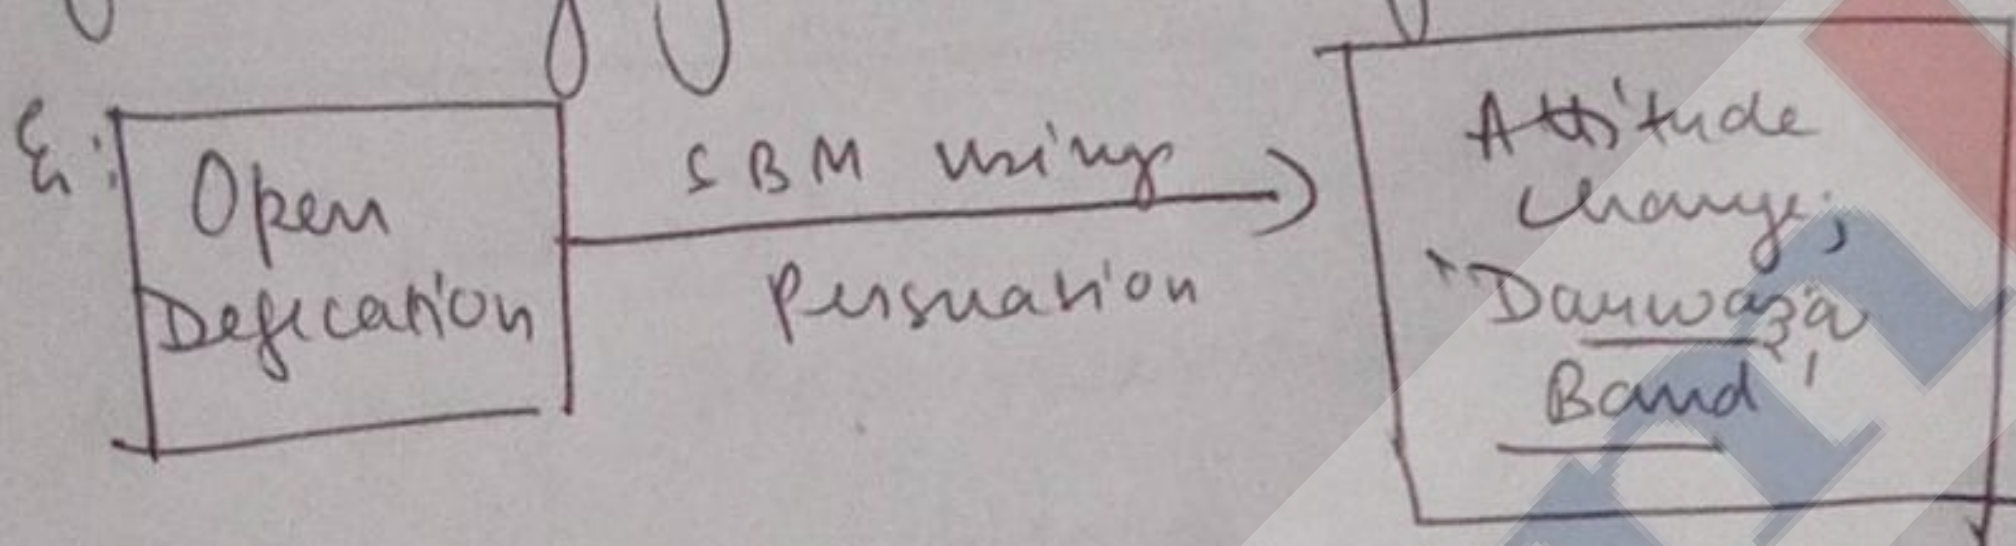 Eg:
Open
Defecation
SBM using
Persuation
Attitude
change;
"Darwaza
Band"